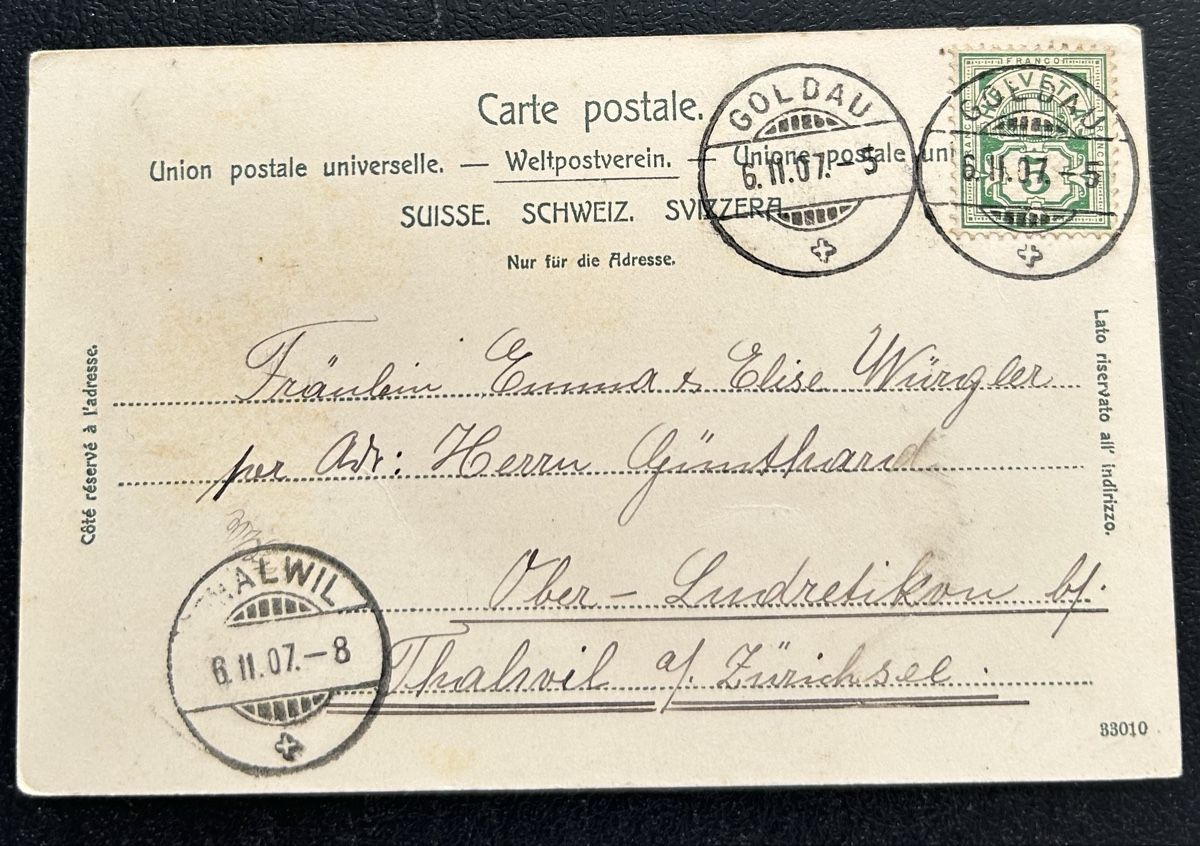 Carte postale.
Union postale universelle. — Weltpostverein. — Unione postale uni
SUISSE. SCHWEIZ. SVIZZERA
Nur für die Adresse.
GOLDAU
6.11.07.-5
GOLDAU
6.11.07.-5
FRANCO
HELVETIA
5
Côté réservé à l'adresse.
Lato riservato all' indirizzo.
Fräulein Emma & Elise Würgler
per Adr: Herrn Günthard
Ober-Ludretikon b/.
Thalwil a/. Zürichsee.
THALWIL
6.11.07.-8
33010